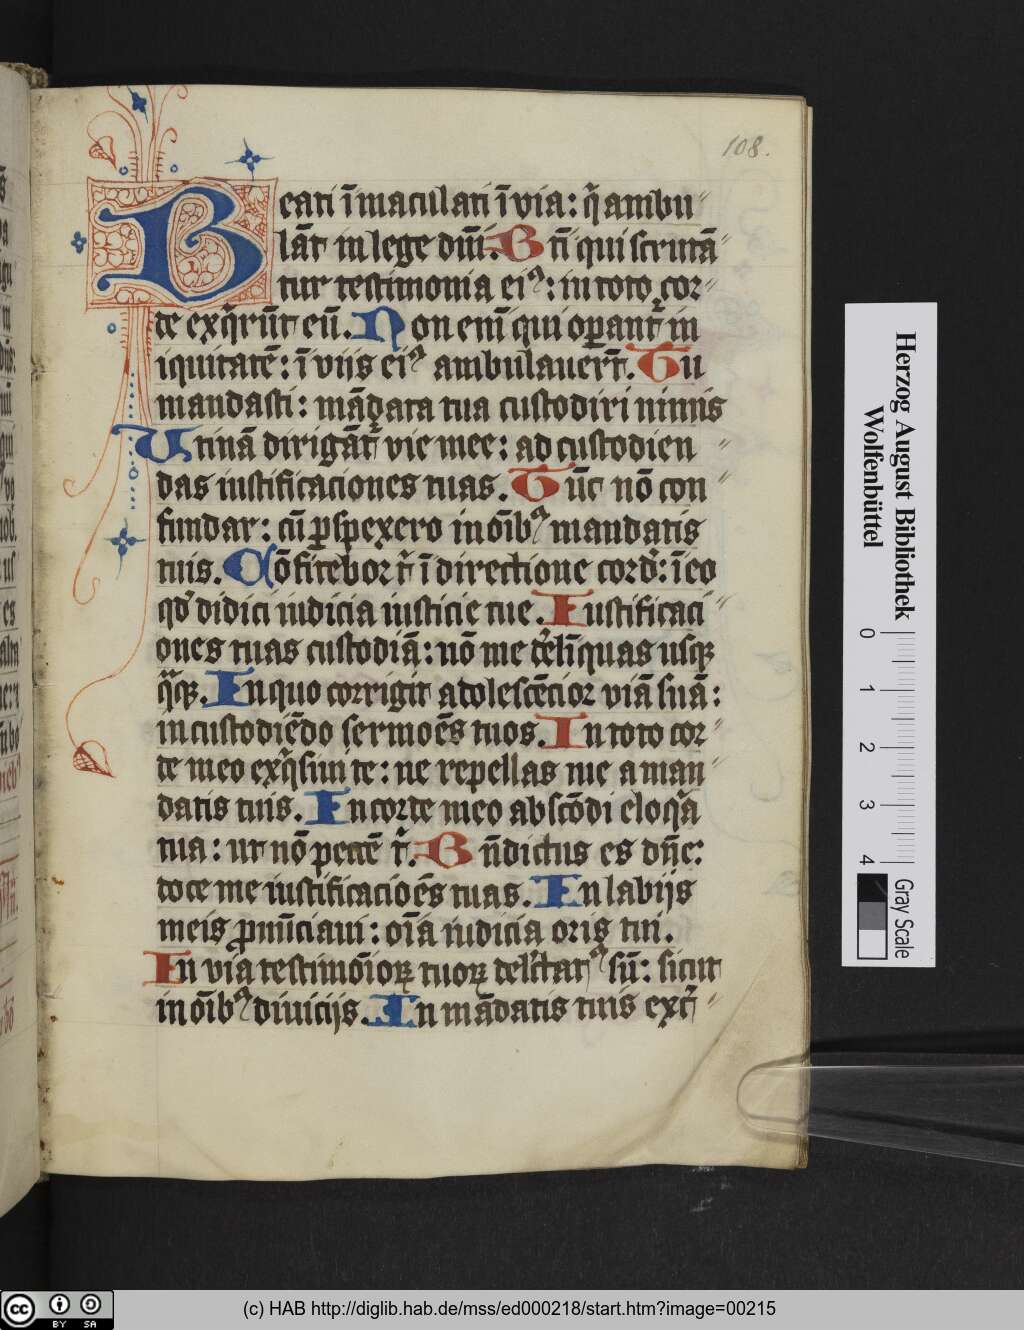 108.
Beati ī maculati ī via: q̄ ambu〃
lāt in lege dn̄i. B tī qui scrutā〃
tur testimonia eiꝰ: in toto cor〃
de exq̄rūt eū. Non enī qui oꝑant̄ in
iquitatē: ī vijs eiꝰ ambulauer̄t. Tu
mandasti: mādata tua custodiri nimis
Utinā dirigāt̄ vie mee: ad custodien〃
das iustificaciones tuas. Tūc nō con〃
fundar: cū ꝑspexero in oībꝰ mandatis
tuis. Cōfitebor t̄ ī directione cord̄: ī eo
qd̄ didici iudicia iusticie tue. Iustificaci〃
ones tuas custodiā: nō me de̾lī̄quas usqꝫ
q̄qꝫ. In quo corrigit adolescēcior viā suā:
in custodiēdo sermoēs tuos. In toto cor〃
de meo exq̄siui te: ne repellas me a man〃
datis tuis. In corde meo abscōdi eloq̄a
tua: ut nō peccē t̄. Bn̄dictus es dn̄e:
doce me iustificacioēs tuas. In labijs
meis ꝓnūciaui: oīa iudicia oris tui.
In via testimōioꝝ tuoꝝ delc̄tatꝰ sū: sicut
in oībꝰ diuicijs. In mādatis tuis exc̄〃
Herzog August Bibliothek
Wolfenbüttel
0 1 2 3 4
Gray Scale
cc BY SA
(c) HAB http://diglib.hab.de/mss/ed000218/start.htm?image=00215